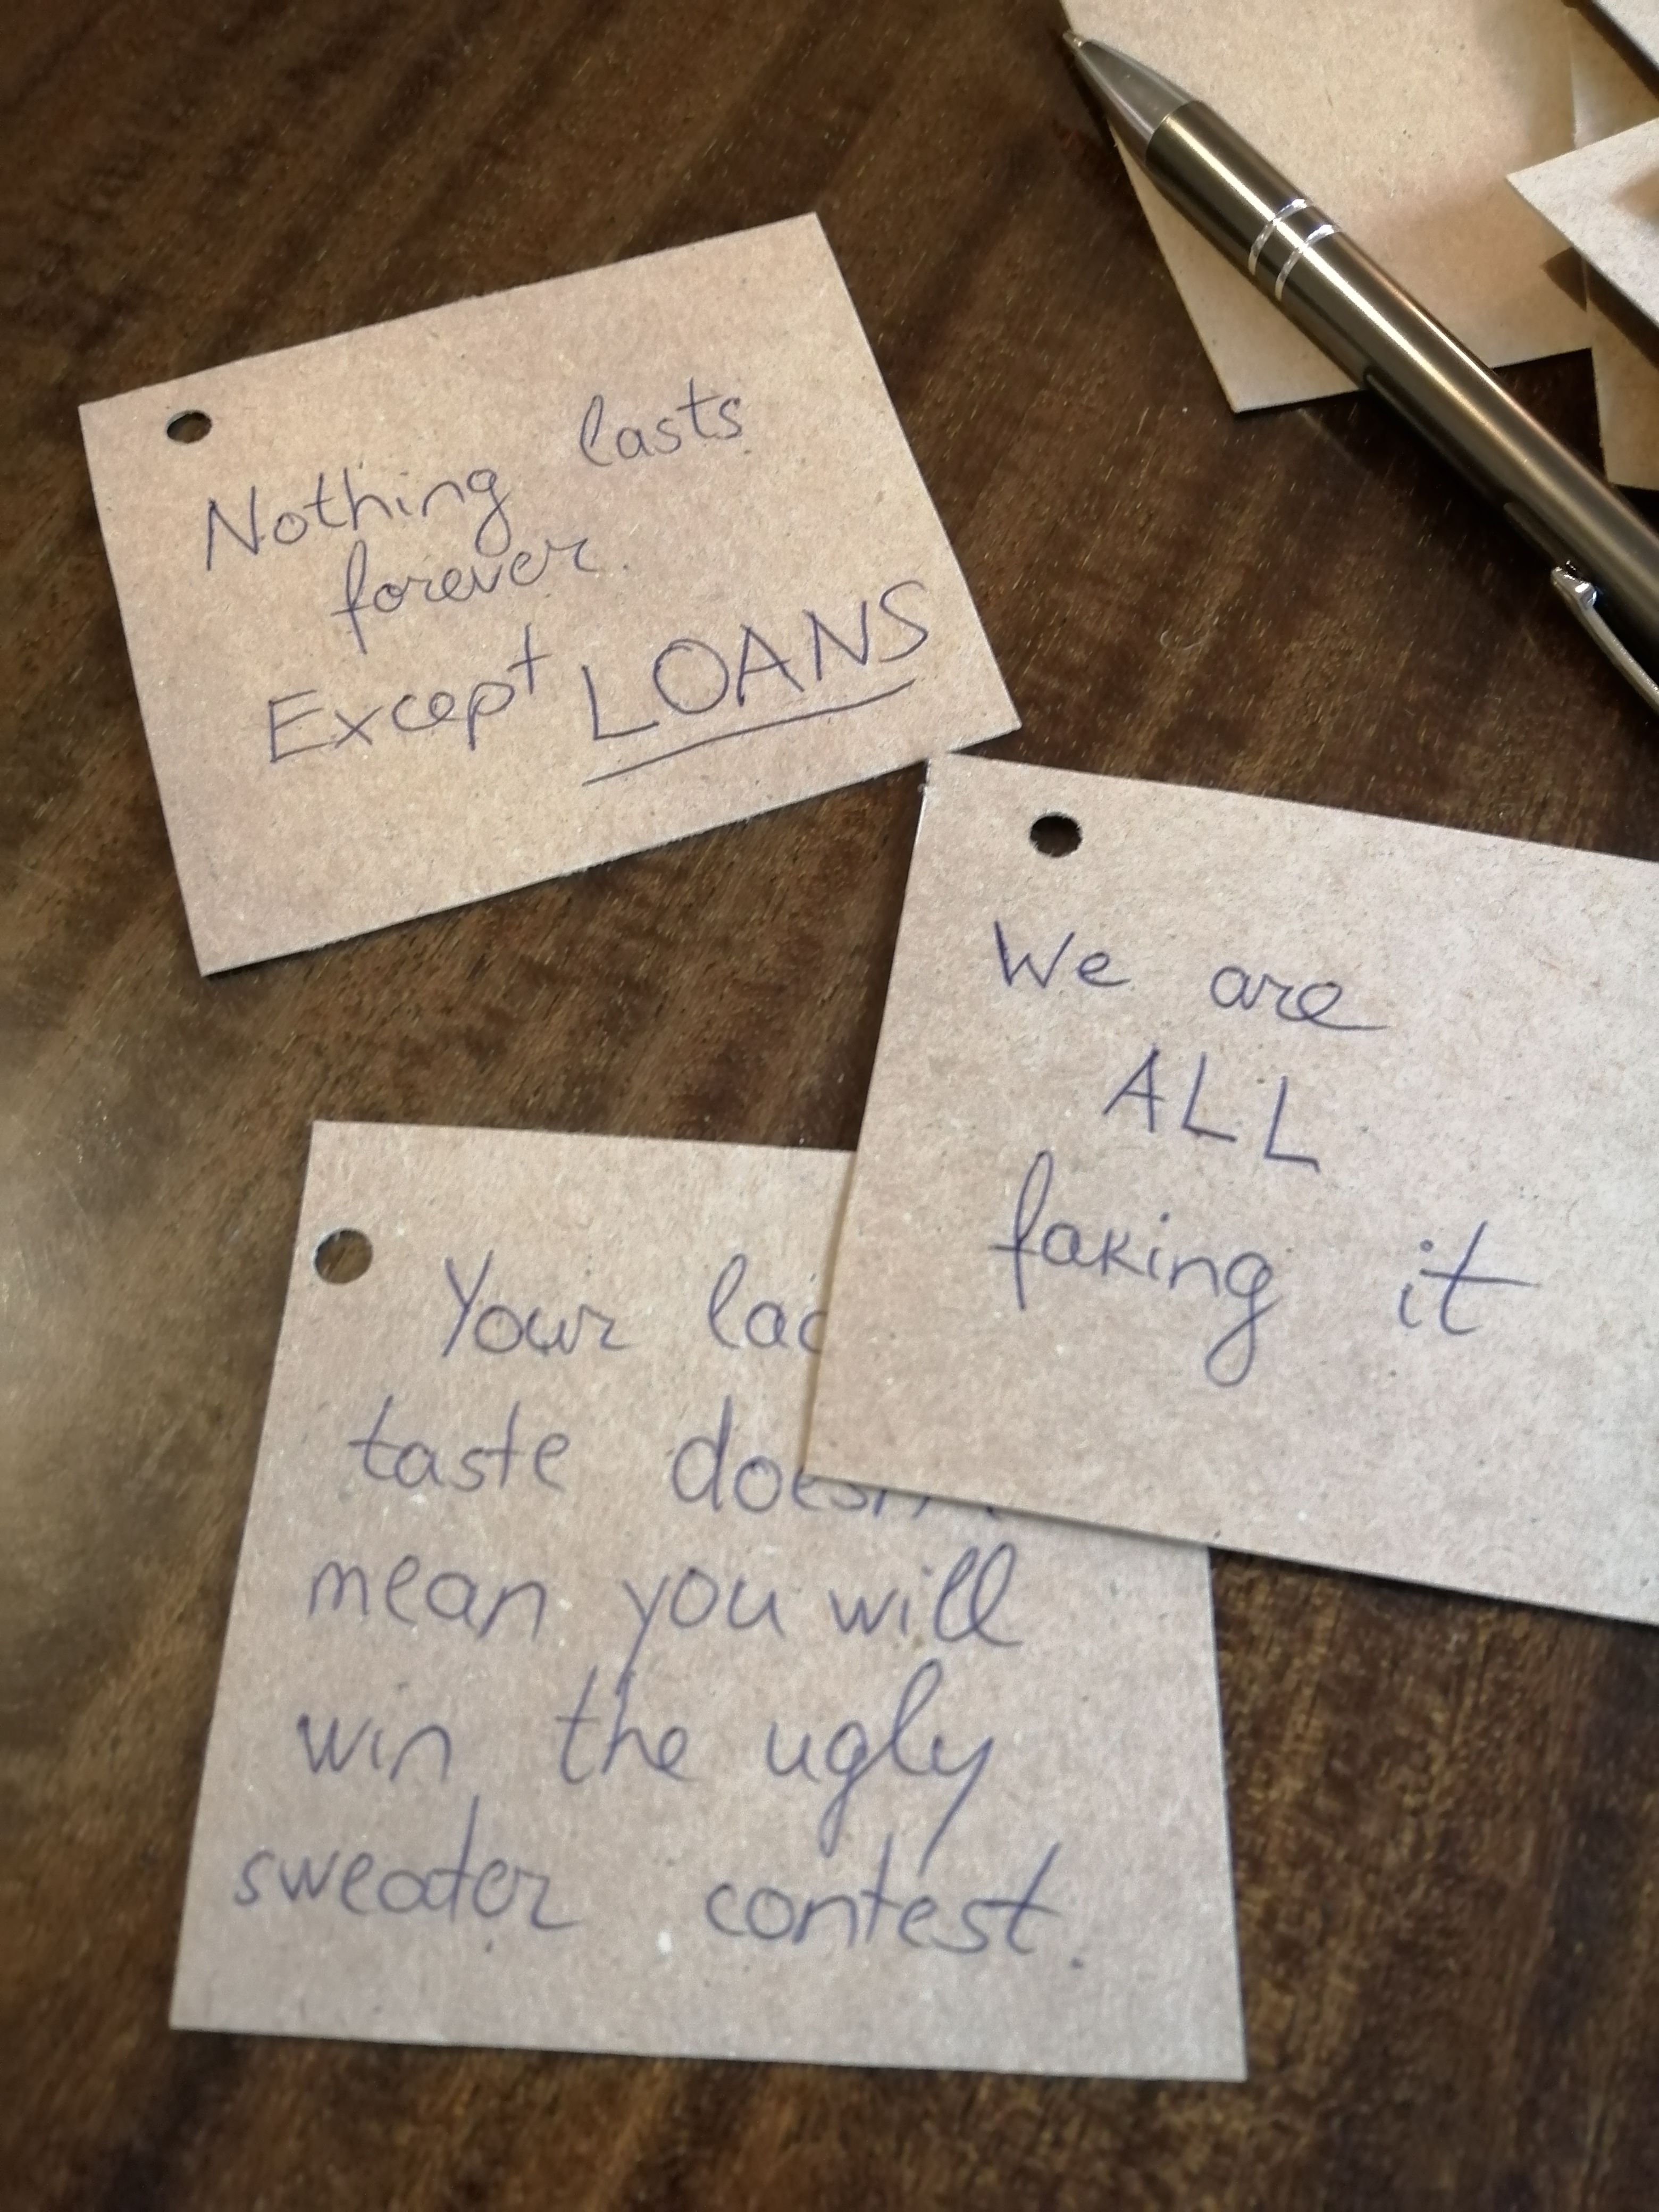 Nothing lasts
forever.
Except LOANS
We are
ALL
faking it
Your
taste
mean you will
win the ugly
sweater contest.